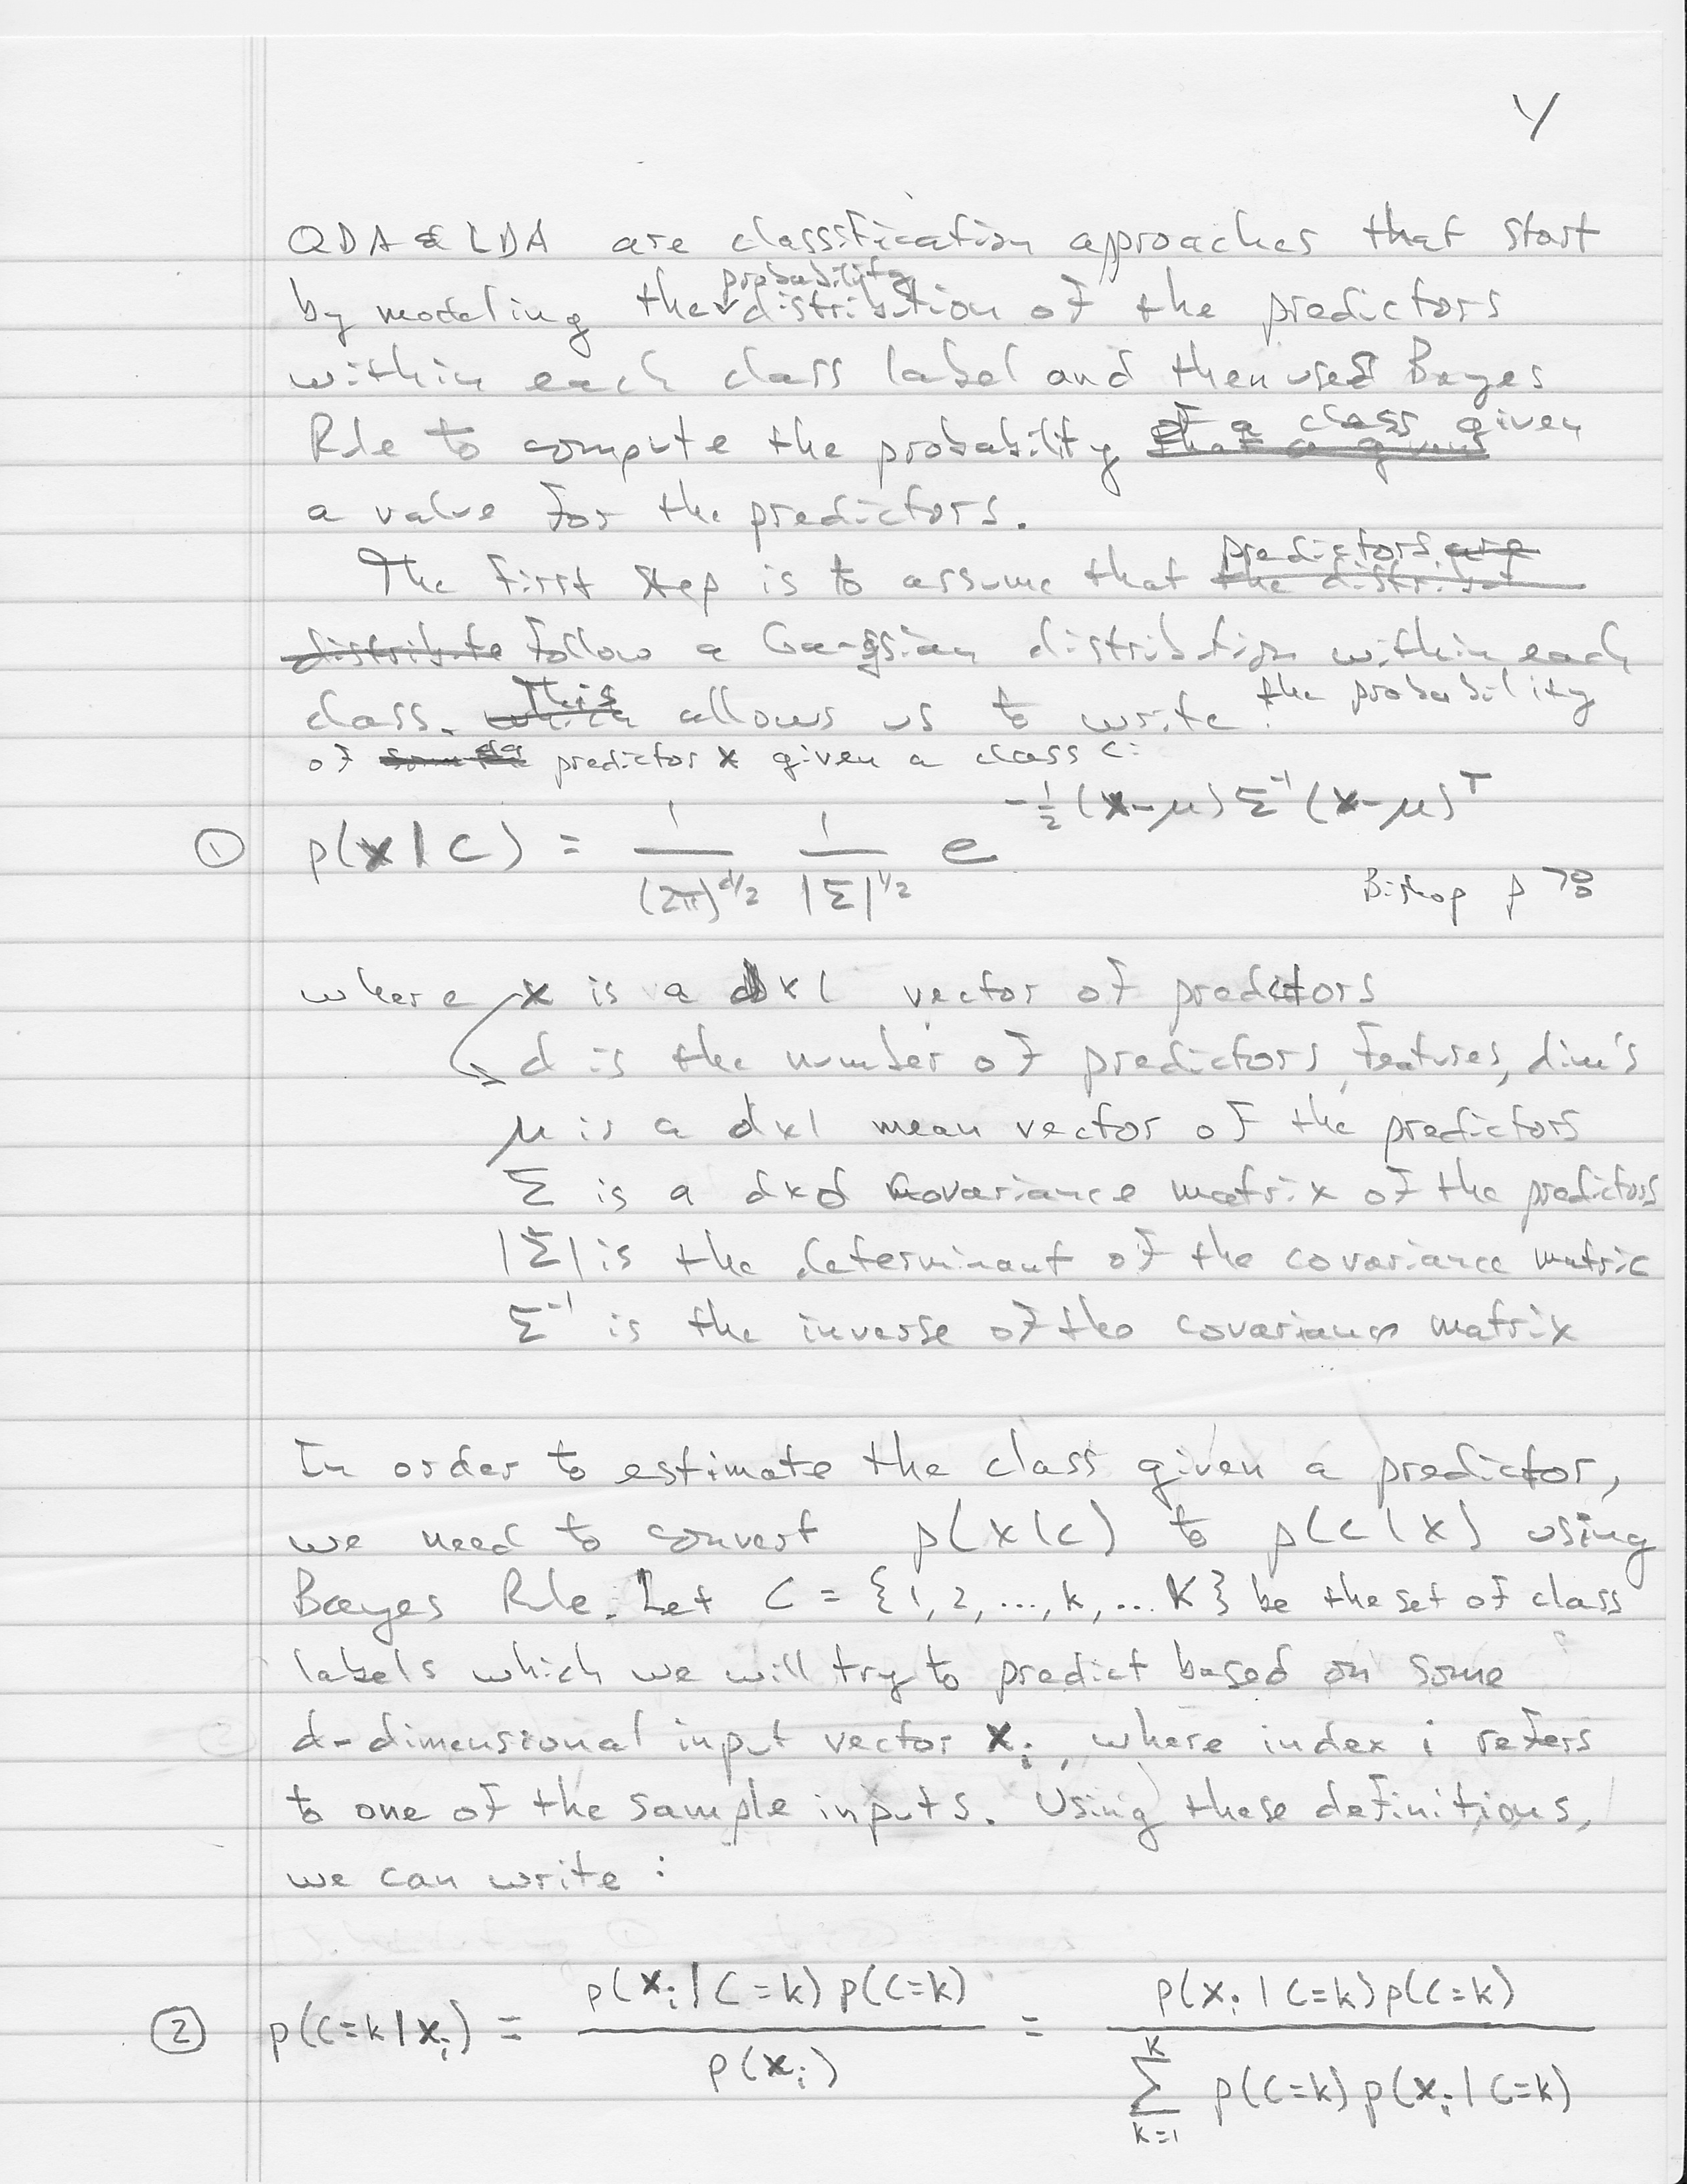 4
QDA & LDA are classification approaches that start
by modeling the probability distribution of the predictors
within each class label and then used Bayes
Rule to compute the probability of a class given
a value for the predictors.
The first step is to assume that predictors
follow a Gaussian distribution within each
class. This allows us to write the probability
of predictor x given a class c:
① p(x|C) = 1/(2π)^(d/2) 1/|Σ|^(1/2) e^(-½(x-μ)Σ⁻¹(x-μ)ᵀ)
Bishop p 78
where x is a dx1 vector of predictors
d is the number of predictors, features, dim's
μ is a dx1 mean vector of the predictors
Σ is a dxd covariance matrix of the predictors
|Σ| is the determinant of the covariance matric
Σ⁻¹ is the inverse of the covariance matrix
In order to estimate the class given a predictor,
we need to convert p(x|c) to p(c|x) using
Bayes Rule. Let C = {1, 2, ..., k, ... K} be the set of class
labels which we will try to predict based on some
d-dimensional input vector xᵢ, where index i refers
to one of the sample inputs. Using these definitions,
we can write:
② p(C=k|xᵢ) = p(xᵢ|C=k)p(C=k) / p(xᵢ) = p(xᵢ|C=k)p(C=k) / Σ_{k=1}^{K} p(C=k)p(xᵢ|C=k)